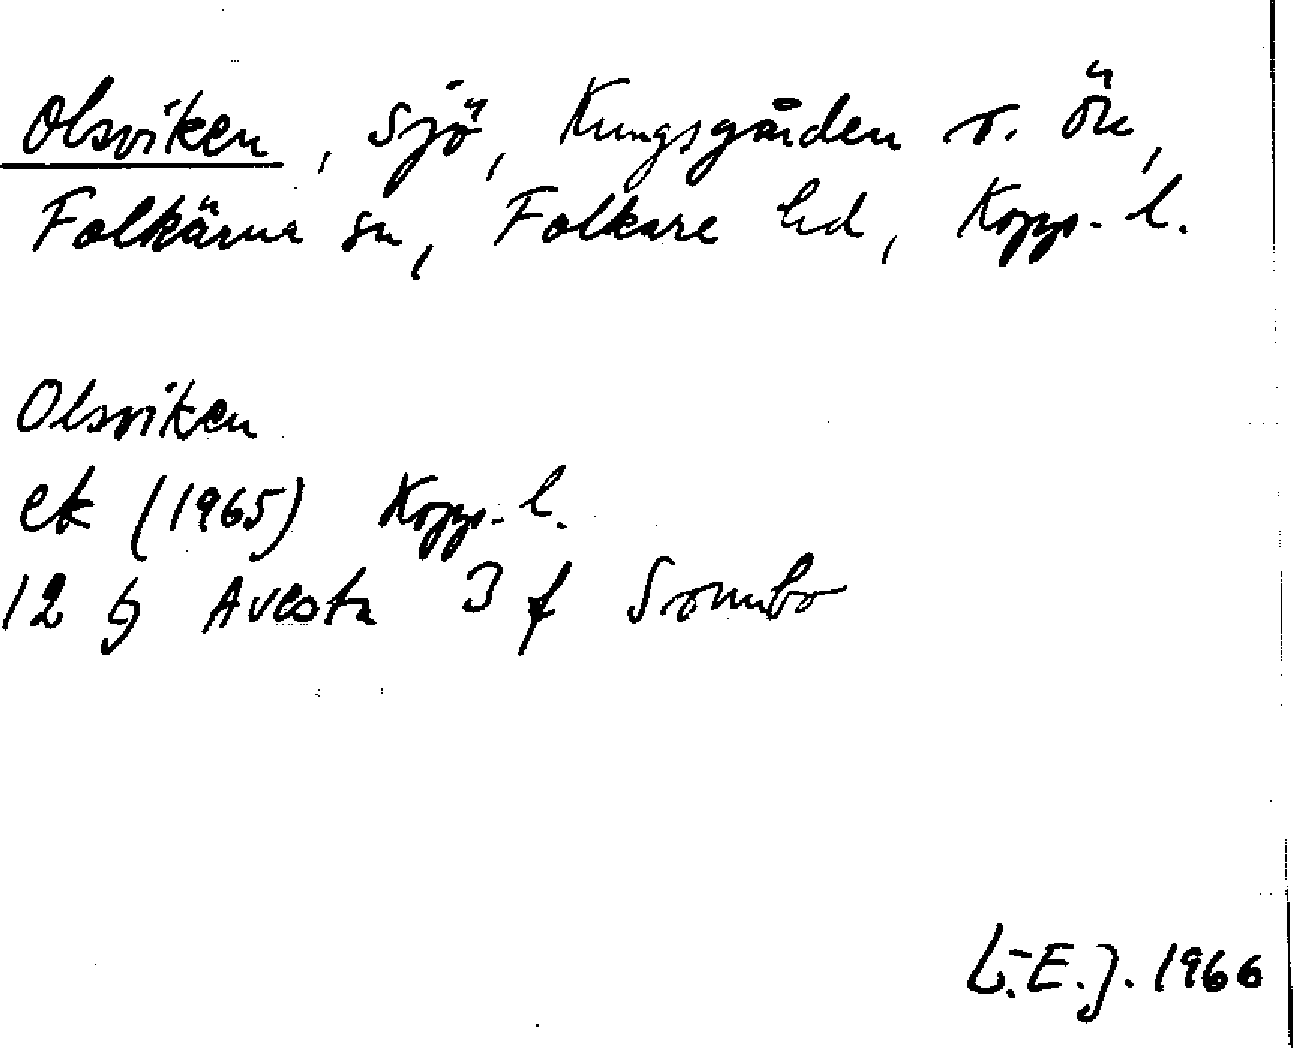 Olsviken, sjö, Kungsgården o. Ön,
Folkärna sn, Folkare hd, Kopp. l.
Olsviken
ek (1965) Kopp. l.
12 G Avesta 3 f Sonnbo
L.-E. J. 1966